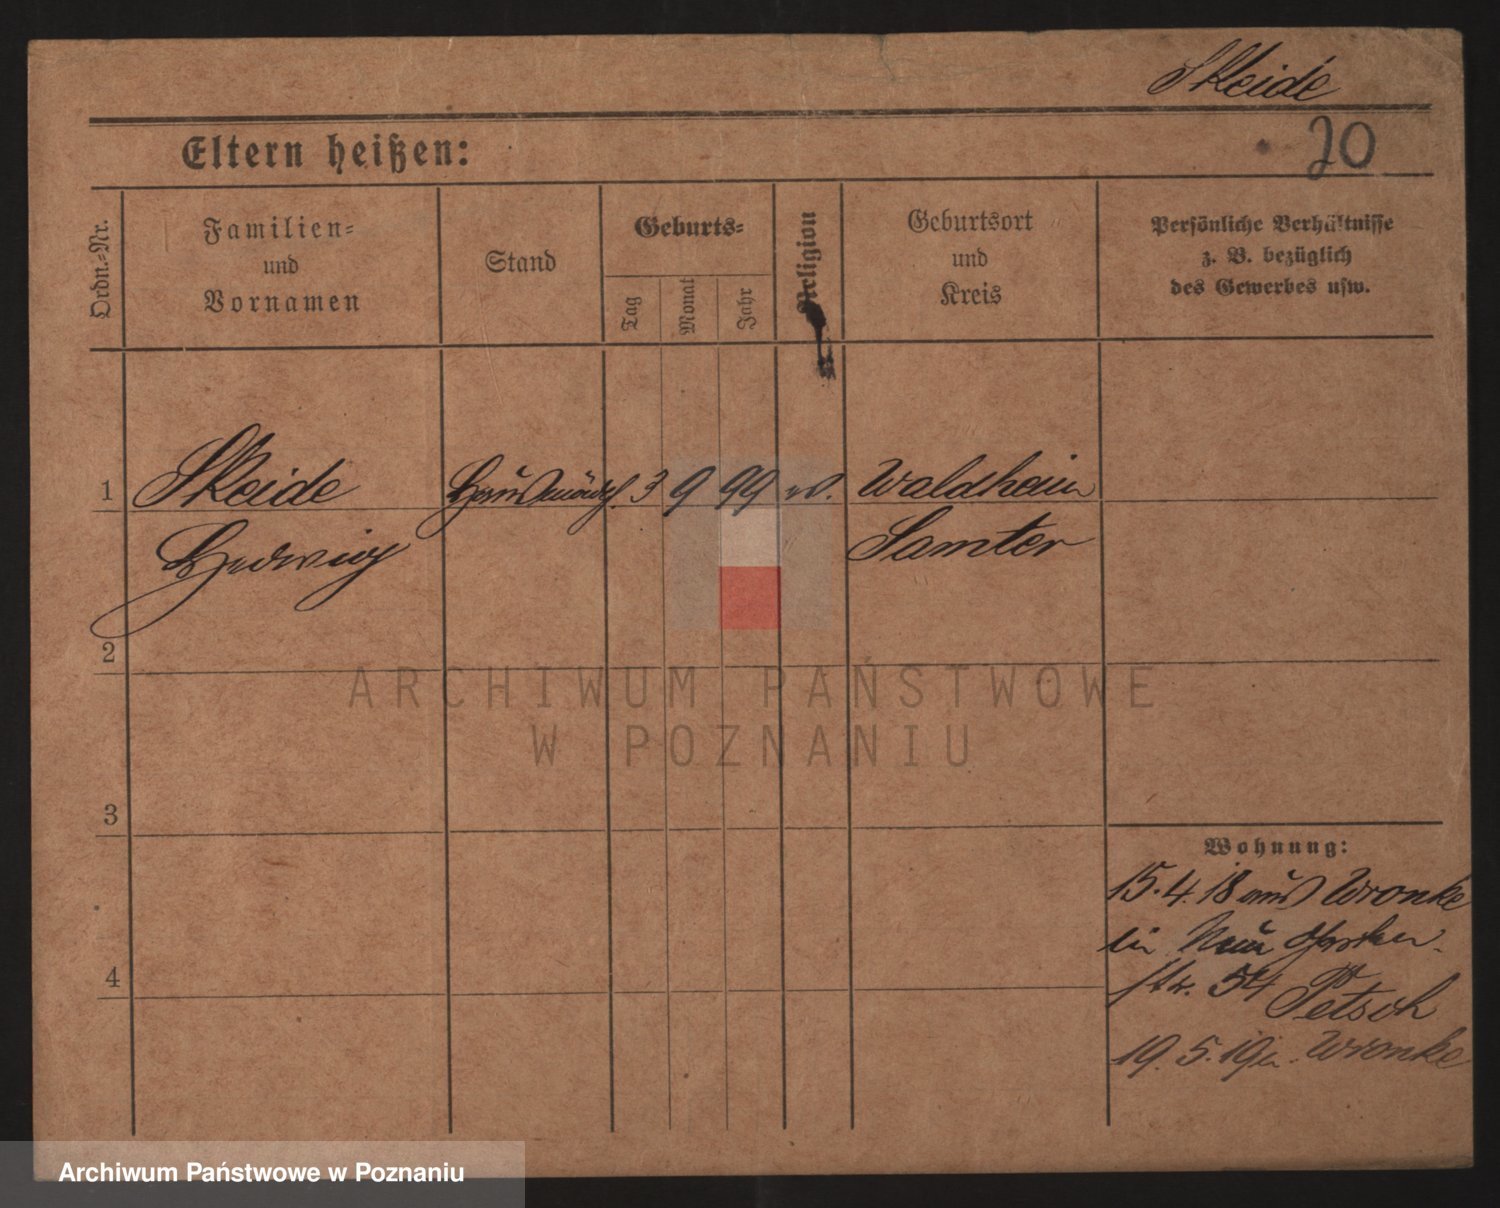 Skeide
20
Eltern heißen:
Ordn.-Nr.
Familien-
und
Vornamen
Stand
Geburts-
Tag
Monat
Jahr
Religion
Geburtsort
und
Kreis
Persönliche Verhältnisse
z. B. bezüglich
des Gewerbes usw.
1 Skeide Hausmädch. 3 9 99 ev. Waldheim
Hedwig Samter
2
3
4
ARCHIWUM PAŃSTWOWE
W POZNANIU
Wohnung:
15.4.18 aus Wronke
in Neue Garten-
str. 54 Petsch
19.5.19 n. Wronke
Archiwum Państwowe w Poznaniu